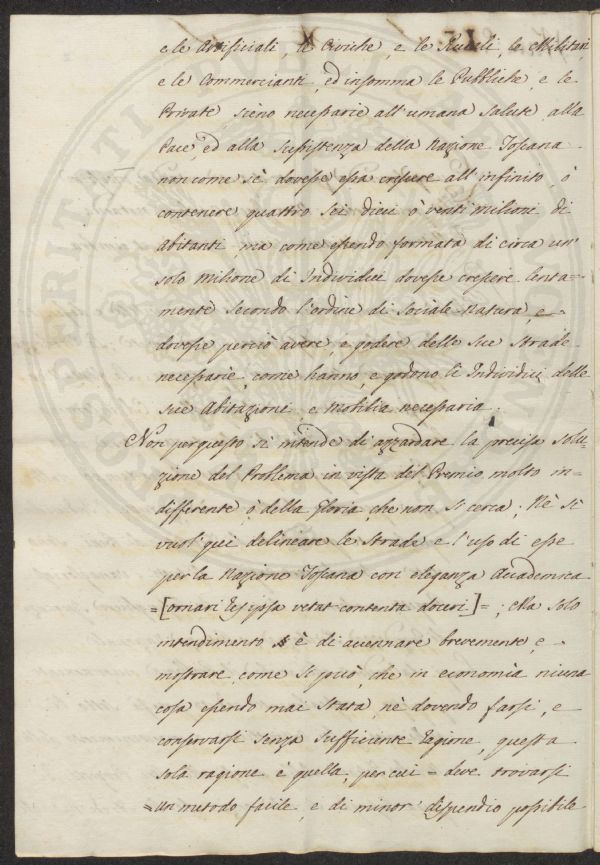 e le Artificiali, le Civiche, e le Rurali, le Militari,
e le Commercianti, ed insomma le Pubbliche, e le
Private siéno necessarie all'umana salute, alla
Pace, ed alla sussistenza della Nazione Toscana
non come sè dovesse essa crescere all'infinito, ò
contenere quattro sei dieci ò venti milioni di
abitanti, ma come essendo formata di circa un'
solo Milione di Individui dovesse crescere lenta=
mente secondo l'ordine di Sociale Natura, e
dovesse perciò avere, e godere delle sue Strade
necessarie, come hanno, e godono li Individui delle
sue Abitazioni, e Mobilia necessaria.
Non per questo si intende di azzardare la precisa solu=
zione del Problema in vista del Premio molto in=
differente, ò della Gloria, che non si cerca, Nè si
vuol qui delineare le Strade e l'uso di esse
per la Nazione Toscana con eleganza Accademica
=[ornari res ipsa vetat contenta doceri]=; Ma solo
intendimento è di accennare brevemente, e
mostrare, come si può, che in economìa niuna
cosa essendo mai stata, nè dovendo farsi, e
conservarsi senza sufficiente ragione, questa
sola ragione è quella, per cui = deve trovarsi
= un metodo facile, e di minor dispendio possibile